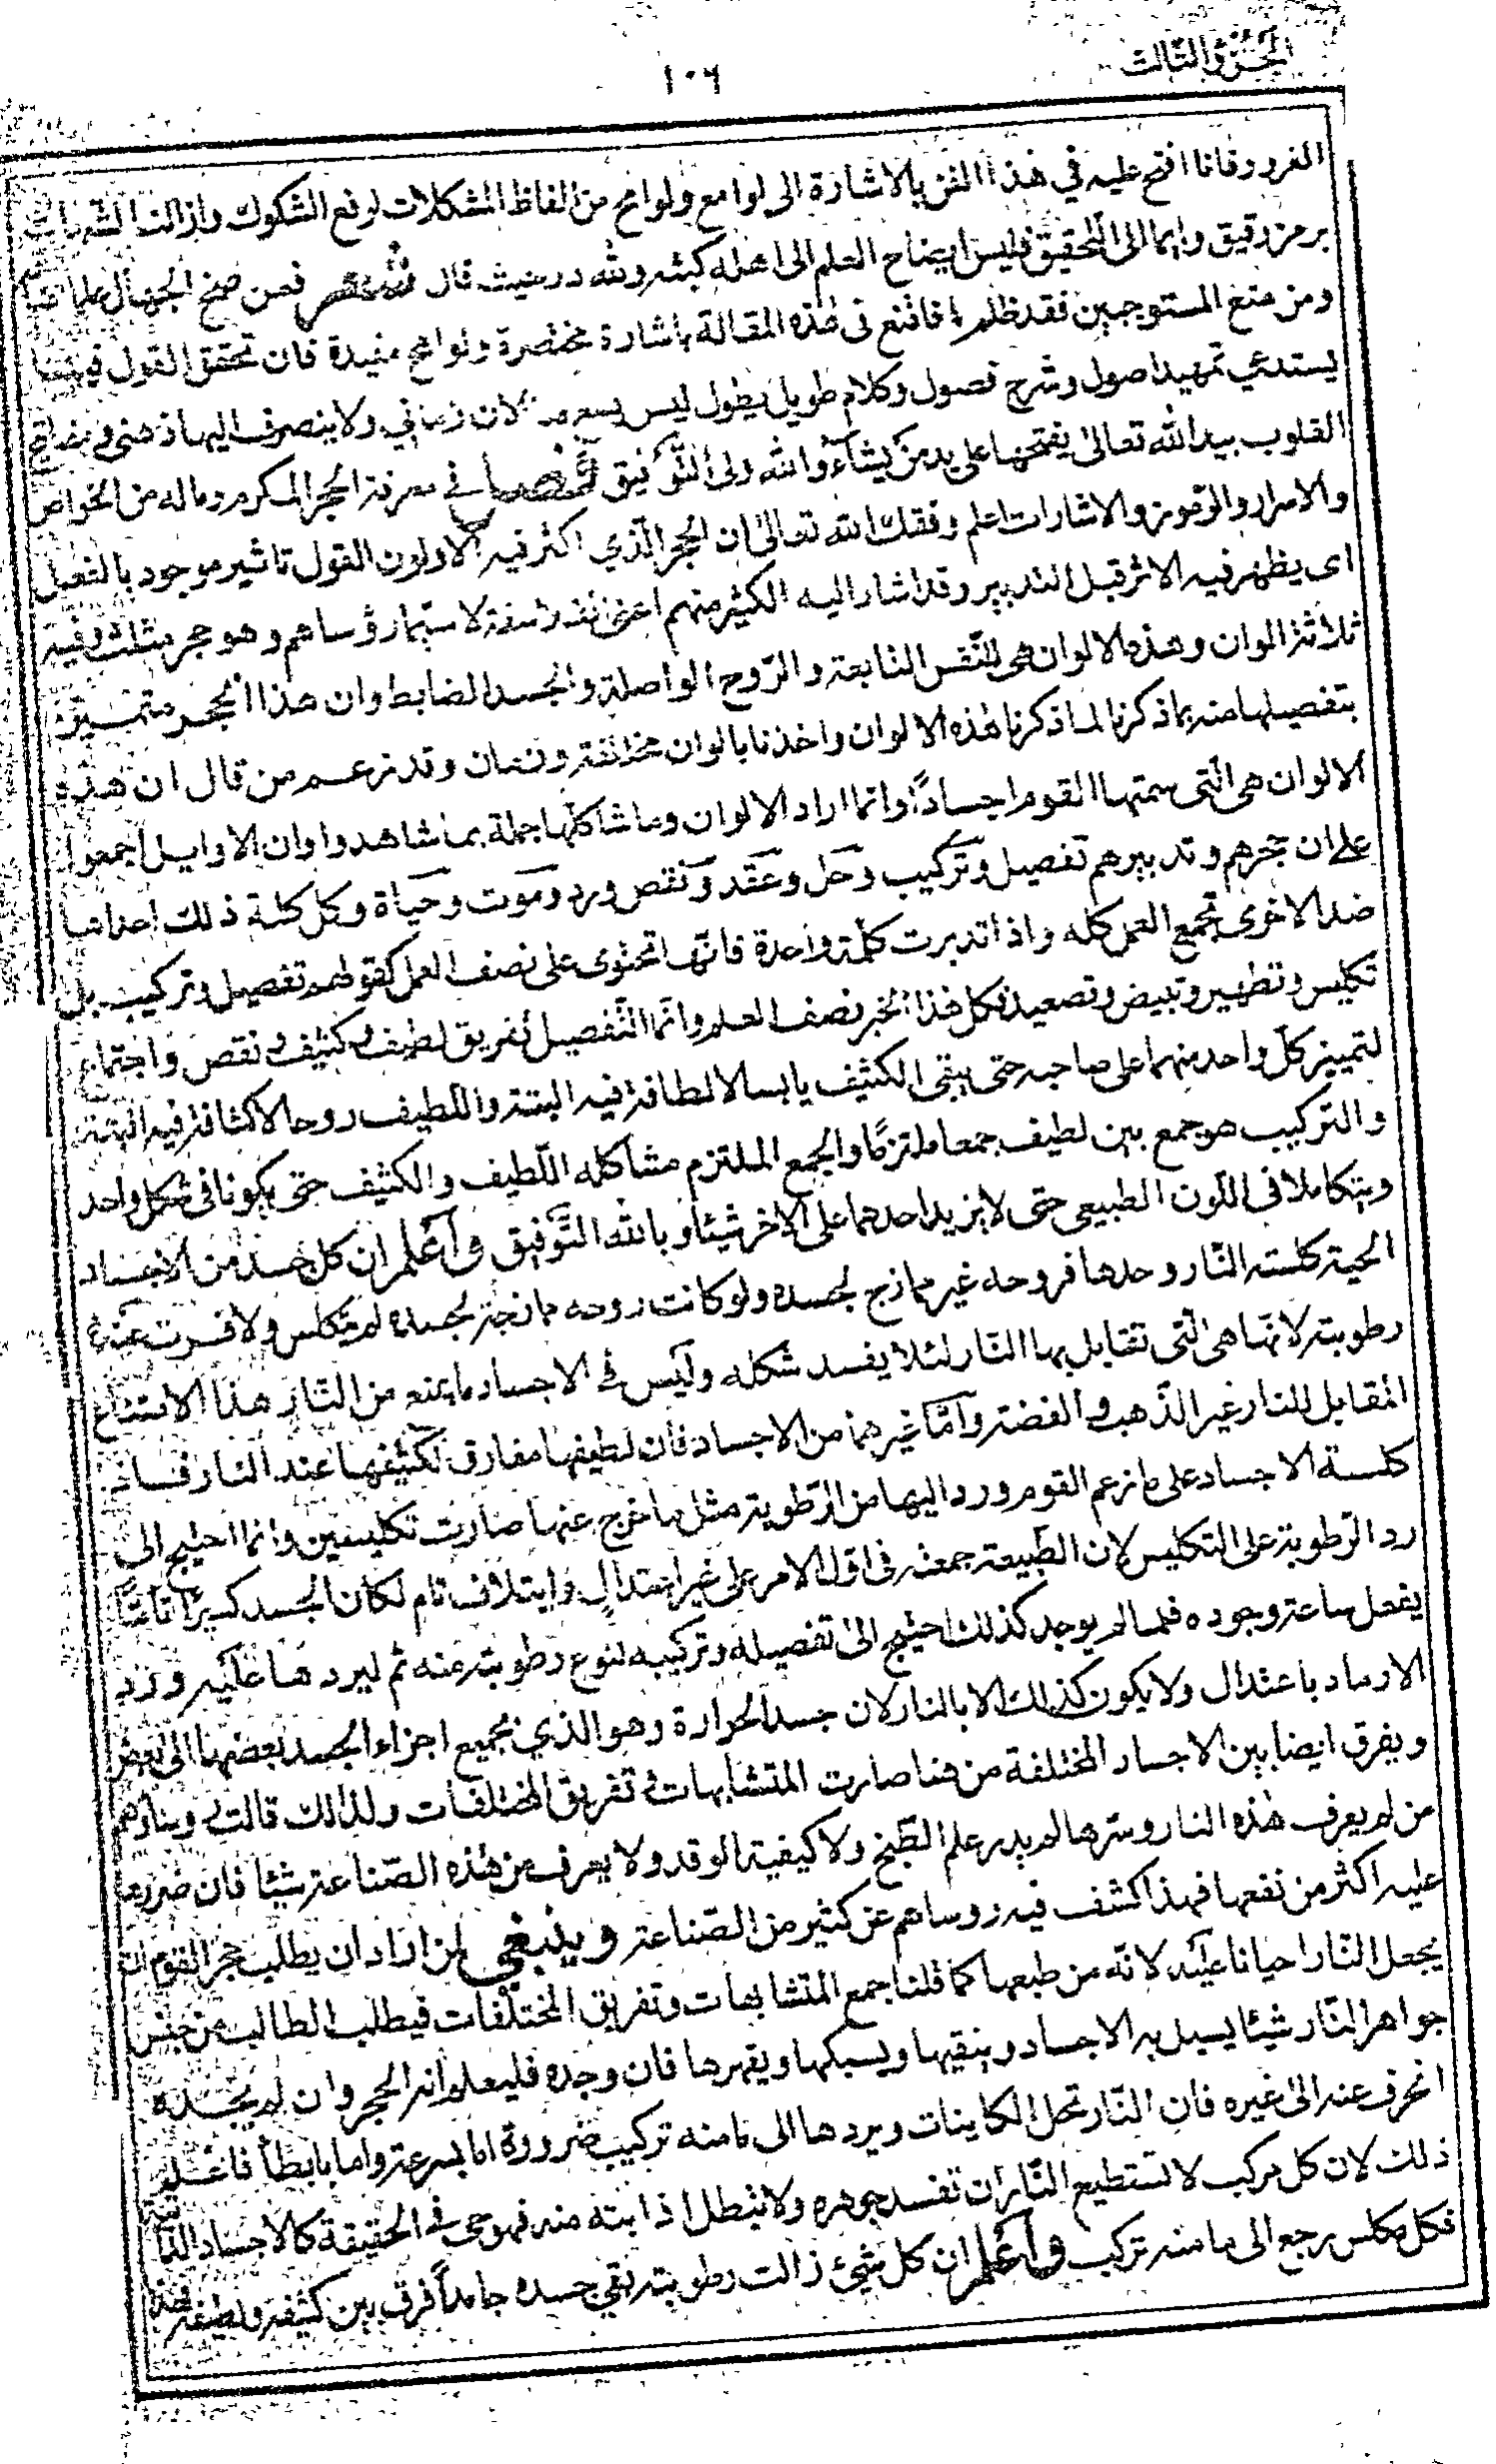 الجزؤ الثالث
١٠٦
الغرر وقانا افتح عليه في هذا الفن بالاشارة الى لوامع ولوامح من الفاظ المشكلات لرفع الشكوك وازالت الشبهات
برمز رقيق وايما الى التحقيق فليس ايضاح العلم الى اهله كبثه ولله در حيث قال شعر فمن منح الجهال علما اضاعه
ومن منع المستوجبين فقد ظلم فاقنع فى هذه المقالة باشارة مختصرة ولوامح مفيدة فان تحقق القول فيها
يستدعي تمهيد اصول وشرح فصول وكلام طويل يطول ليس يسعه الان زماني ولا ينصرف اليها ذهنى ومفاتح
القلوب بيد الله تعالى يفتحها على يد من يشاء والله ولى التوفيق فصل في معرفة الحجر المكرم وماله من الخواص
والاسرار والرموز والاشارات اعلم وفقك الله تعالى ان الحجر الذي اكثر فيه الاولون القول تاثير موجود بالفعل
اى يظهر فيه الاثر قبل التدبير وقد اشار اليه الكثير منهم اعنى الفلاسفة لا سيما رؤساهم وهو حجر مثلث وفيه
ثلاثة الوان وهذه الالوان هى للنفس التابعة والروح الواصلة والجسد الضابط وان هذا الحجر متميز
بتفصيلها منه بما ذكرنا لما ذكرنا هذه الالوان واخذنا بالوان مختلفة وقد زعم من قال ان هذه
الالوان هى التى سمتها القوم اجسادا وانما اراد الالوان وما شاكلها جملة بما شاهدوا وان الاوايل اجمعوا
على ان حجرهم وتدبيرهم تفصيل وتركيب وحل وعقد ونقص ورد وموت وحياة وكل كلمة ذلك احداها
ضد الاخرى تجمع العمل كله واذا تدبرت كلمة واحدة فانها تحتوى على نصف العمل كقولهم تفصيل وتركيب بل
تكليس وتطهير وتبيض وتصعيد فكل هذا الخبر نصف العلم وانما التفصيل تفريق لطيف وكثيف ونقص واجتماع
لتمييز كل واحد منهما على صاحبه حتى يبقى الكثيف يابسا لا لطافة فيه البتة واللطيف روحا لا كثافة فيه البتة
والتركيب هو جمع بين لطيف جمعا ملتزما والجمع الملتزم مشاكله اللطيف والكثيف حتى يكونا فى شكل واحد
ويتكاملا فى اللون الطبيعى حتى لا يزيد احدهما على الاخر شيئا وبالله التوفيق واعلم ان كل جسد من الاجساد
الحية كلسته النار وحدها فروحه غير ممازج لجسده ولو كانت روحه ممازجة لجسده لم يتكلس ولا فرت عنه
رطوبته لانها هى التى تقابل بها النار لئلا يفسد شكله وليس في الاجساد ما يمنع من النار هذا الامتناع
المقابل للنار غير الذهب والفضة واما غيرهما من الاجساد فان لطيفها مفارق لكثيفها عند النار فان
كلسة الاجساد على ما زعم القوم ورد اليها من الرطوبة مثل ما خرج عنها صارت تكليسين وانما احتيج الى
رد الرطوبة على التكليس لان الطبيعة جمعته فى اول الامر على غير اعتدال وايتلاف تام لكان الجسد كسيرا تاما
يفعل ساعة وجوده فلما لم يوجد كذلك احتيج الى تفصيله وتركيبه لنوع رطوبته عنه ثم ليردها عليه ورد
الارماد باعتدال ولا يكون كذلك الا بالنار لان جسد الحرارة وهو الذي بجميع اجزاء الجسد بعضها الى بعض
ويفرق ايضا بين الاجساد المختلفة من هنا صارت المتشابهات في تفريق المختلفات ولذلك قالت وبنارهم
من لم يعرف هذه النار وسرها لم يدر علم الطبخ ولا كيفية الوقد ولا يعرف من هذه الصناعة شيئا فان ضررها
عليه اكثر من نفعها فهذا كشف فيه روساهم عن كثير من الصناعة وينبغي لمن اراد ان يطلب حجر القوم ان
يجعل النار احيانا عليه لانه من طبعها كما قلنا جمع المتشابهات وتفريق المختلفات فيطلب الطالب من جنس
جواهر النار شيئا يسبل به الاجساد وينقيها ويسبكها ويقهرها فان وجده فليعلم انه الحجر وان لم يجده
انحرف عنه الى غيره فان النار تحل الكاينات ويردها الى ما منه تركيب ضرورة اما بسرعة واما بابطأ فاعلم
ذلك لان كل مركب لا تستطيع النار ان تفسد جوهره ولا تبطل اذابته منه فهو حى فى الحقيقة كالاجساد الذائبة
فكل مكلس يرجع الى ما منه تركيب واعلم ان كل شيئ زالت رطوبته بقي جسده جامدا فرق بين كثيفه ولطيفه فهذه